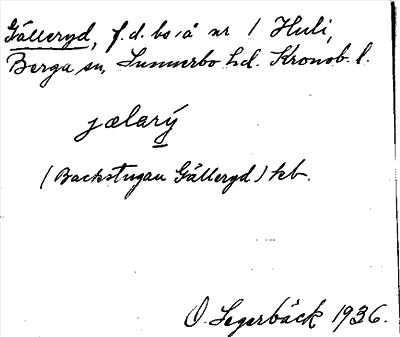 Gälleryd, f.d. bs. å nr 1 Huli,
Berga sn, Sunnerbo hd. Kronob. l.
jælarý
(Backstugan Gälleryd) kb.
O. Segerbäck 1936.